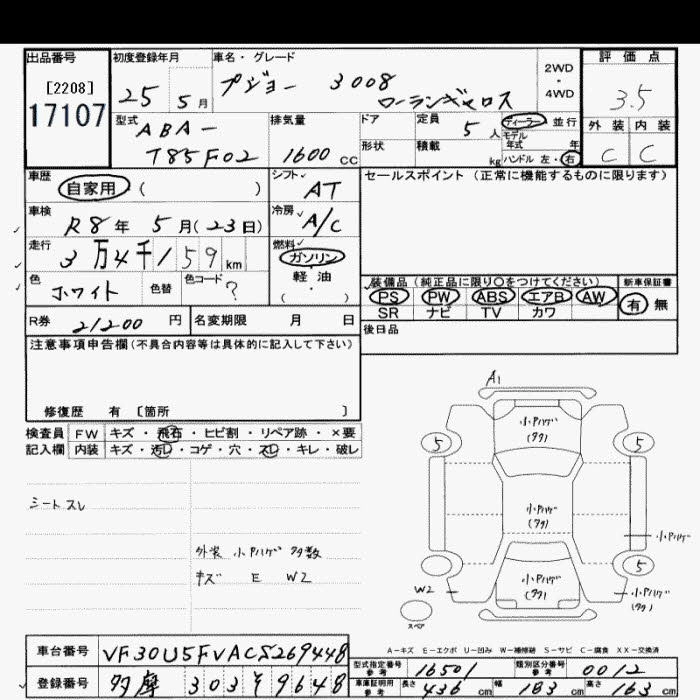 出品番号
[2208]
17107
初度登録年月
25 5月
車名・グレード
プジョー 3008
ローランギャロス
2WD
・
4WD
評価点
3.5
外装 内装
C C
型式
ABA-
T85F02
排気量
1600 cc
ドア
定員
5人
形状
積載
kg
ディーラー 並行
モデル
年式 年
ハンドル 左・右
車歴
自家用 ( )
シフト
AT
セールスポイント (正常に機能するものに限ります)
車検
R8年 5月(23日)
冷房
A/C
走行
3万4千159km
燃料
ガソリン
軽・油
( )
色
ホワイト
色替
色コード
?
装備品 (純正品に限り○をつけてください)
PS PW ABS エアB AW
SR ナビ TV カワ
新車保証書
有 無
R券 21200 円
名変期限 月 日
後日品
注意事項申告欄(不具合内容等は具体的に記入して下さい)
修復歴 有 [箇所 ]
検査員
記入欄
FW キズ・飛石・ヒビ割・リペア跡・×要
内装 キズ・汚レ・コゲ・穴・スレ・キレ・破レ
シートスレ
外装 小Pハゲ多数
キズ E W2
A1
小Pハゲ
(タタ)
5 5
小Pハゲ
(タタ)
小Pハゲ
5
小Pハゲ
(タタ)
W2
小Pハゲ
(タタ)
スペア
A-キズ E-エクボ U-凹み W-補修跡 S-サビ C-腐食 XX-交換済
車台番号 VF30U5FVACS269448
登録番号 多摩 303 そ 9648
型式指定番号
参考
16501
類別区分番号
参考
0012
車庫証明用
参考
長さ 436 cm 幅 183 cm 高さ 163 cm